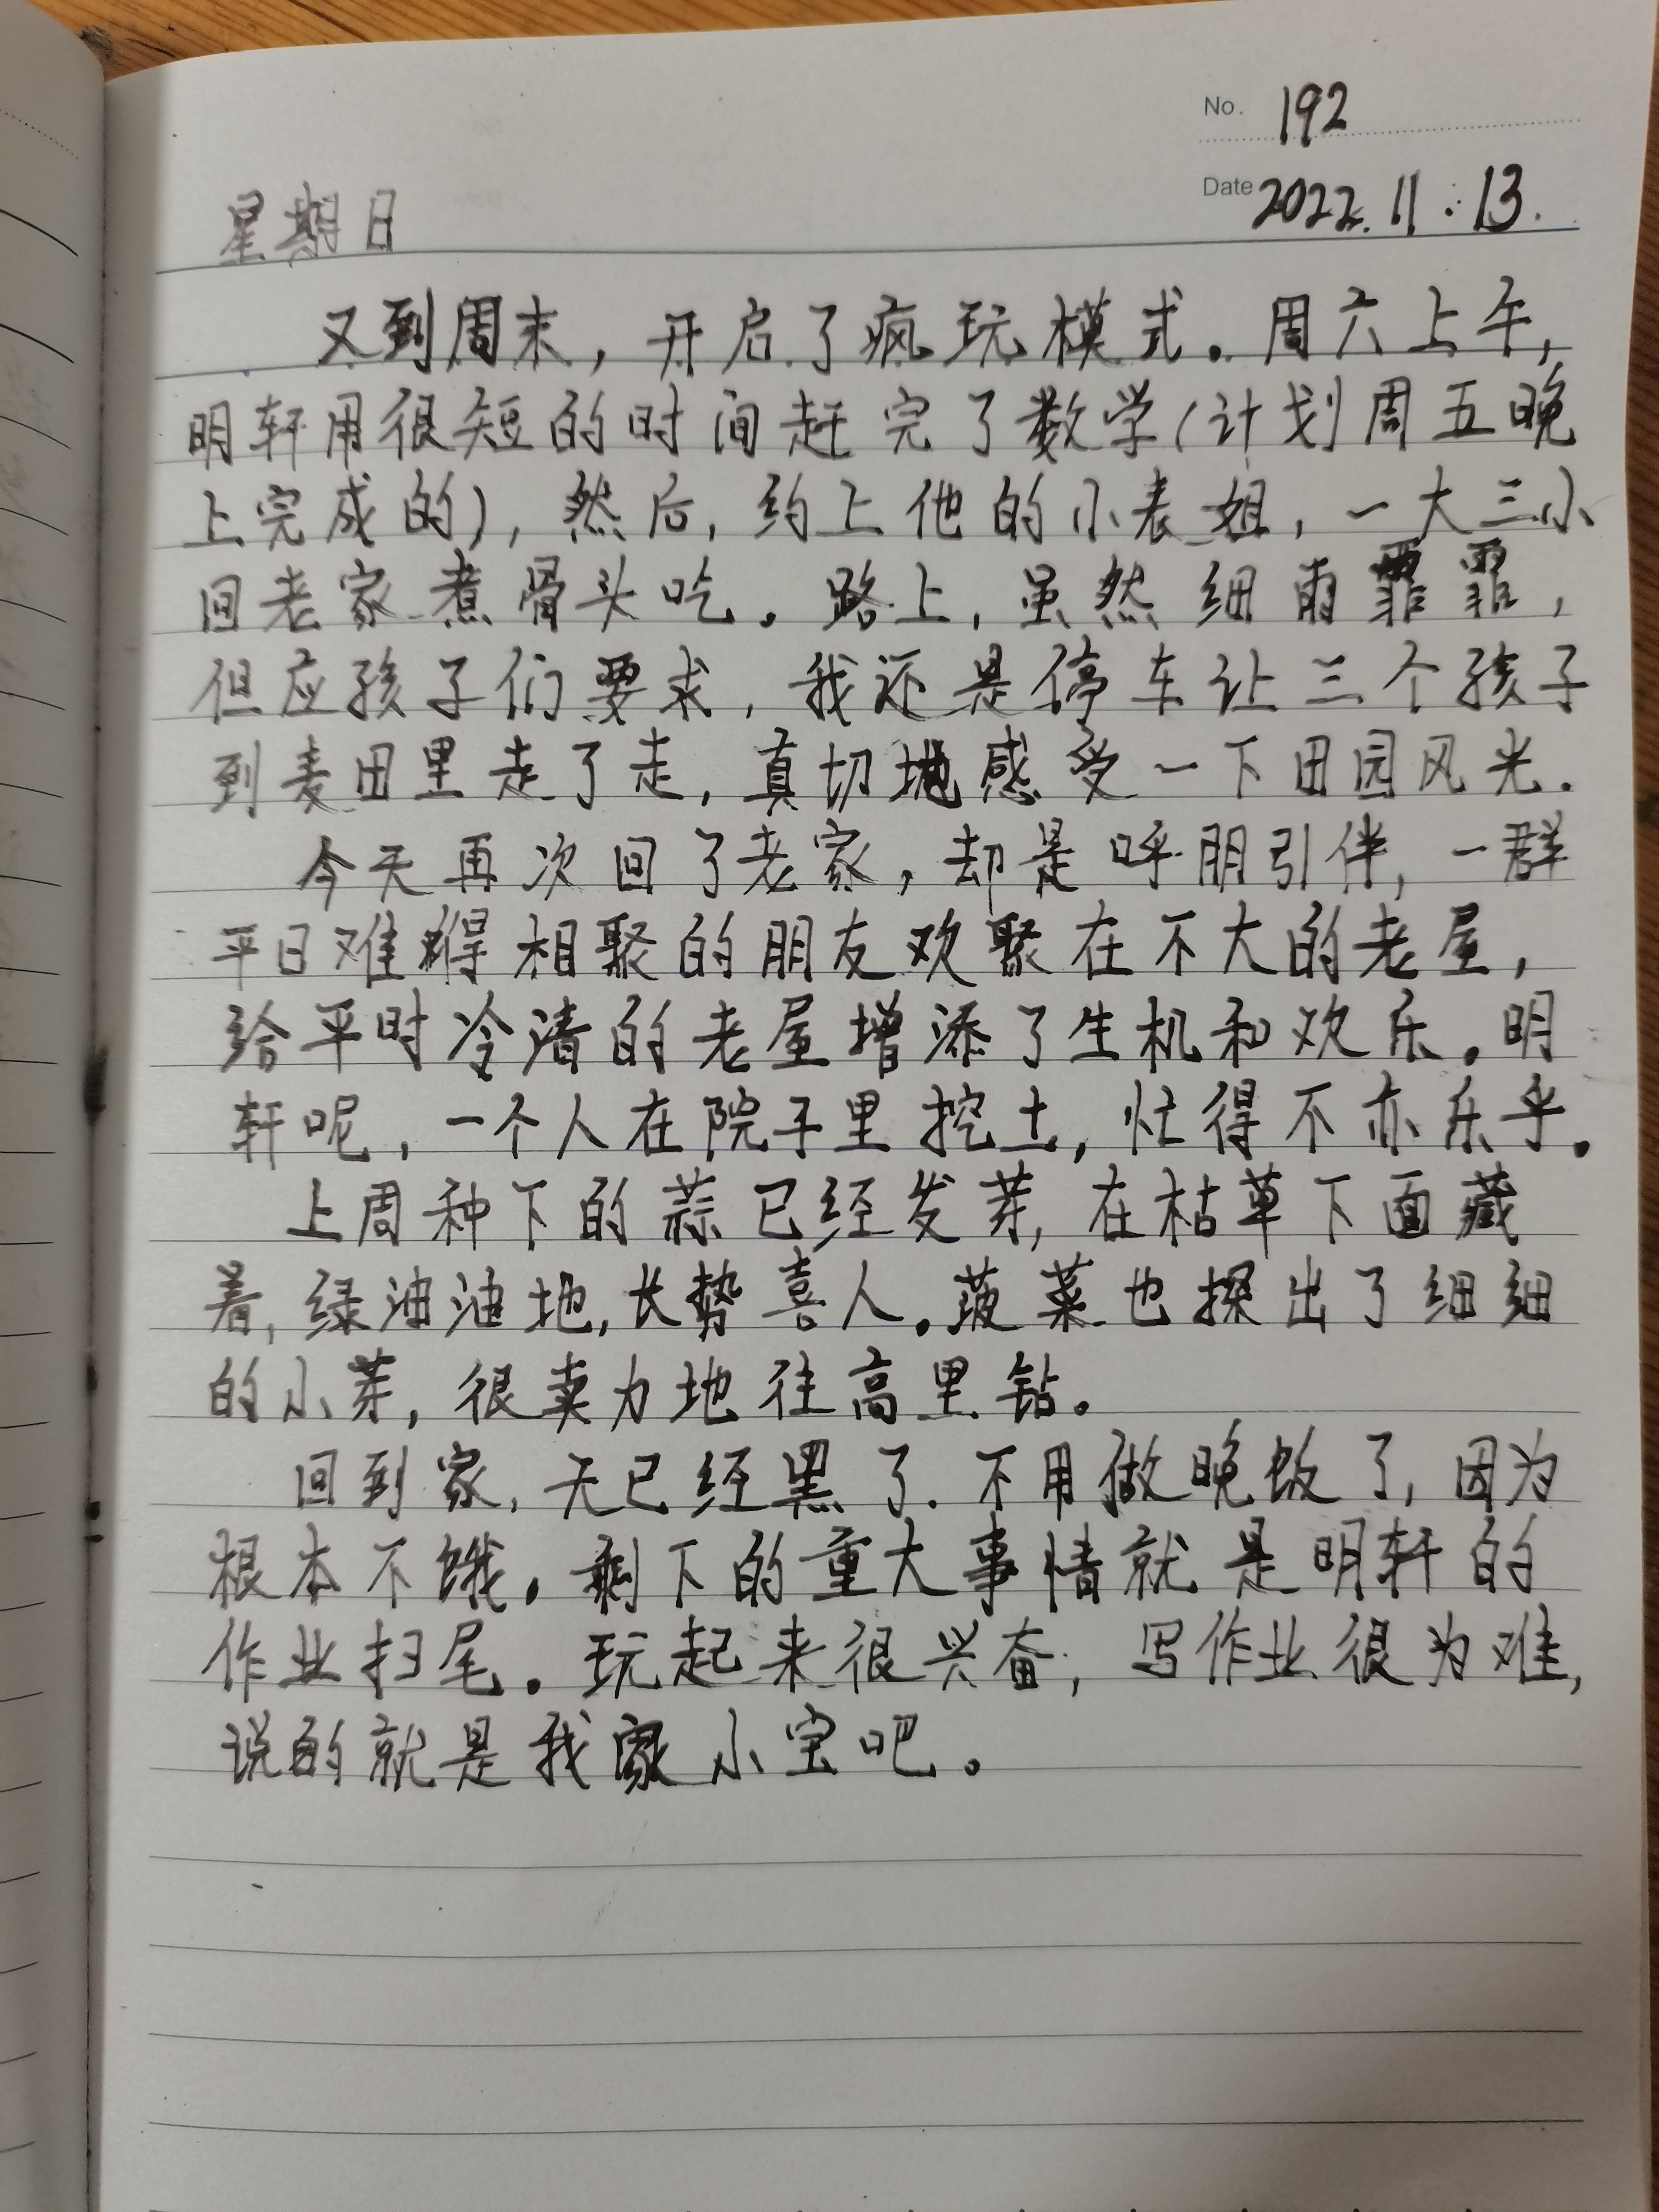 No. 192
Date 2022.11.13.
星期日
又到周末，开启了疯玩模式。周六上午，
明轩用很短的时间赶完了数学(计划周五晚
上完成的)，然后，约上他的小表姐，一大三小
回老家煮骨头吃。路上，虽然细雨霏霏，
但应孩子们要求，我还是停车让三个孩子
到麦田里走了走，真切地感受一下田园风光.
今天再次回了老家，却是呼朋引伴，一群
平日难得相聚的朋友欢聚在不大的老屋，
给平时冷清的老屋增添了生机和欢乐。明
轩呢，一个人在院子里挖土，忙得不亦乐乎。
上周种下的蒜已经发芽，在枯草下面藏
着，绿油油地，长势喜人。菠菜也探出了细细
的小芽，很卖力地往高里钻。
回到家，天已经黑了.不用做晚饭了，因为
根本不饿。剩下的重大事情就是明轩的
作业扫尾。玩起来很兴奋，写作业很为难，
说的就是我家小宝吧。